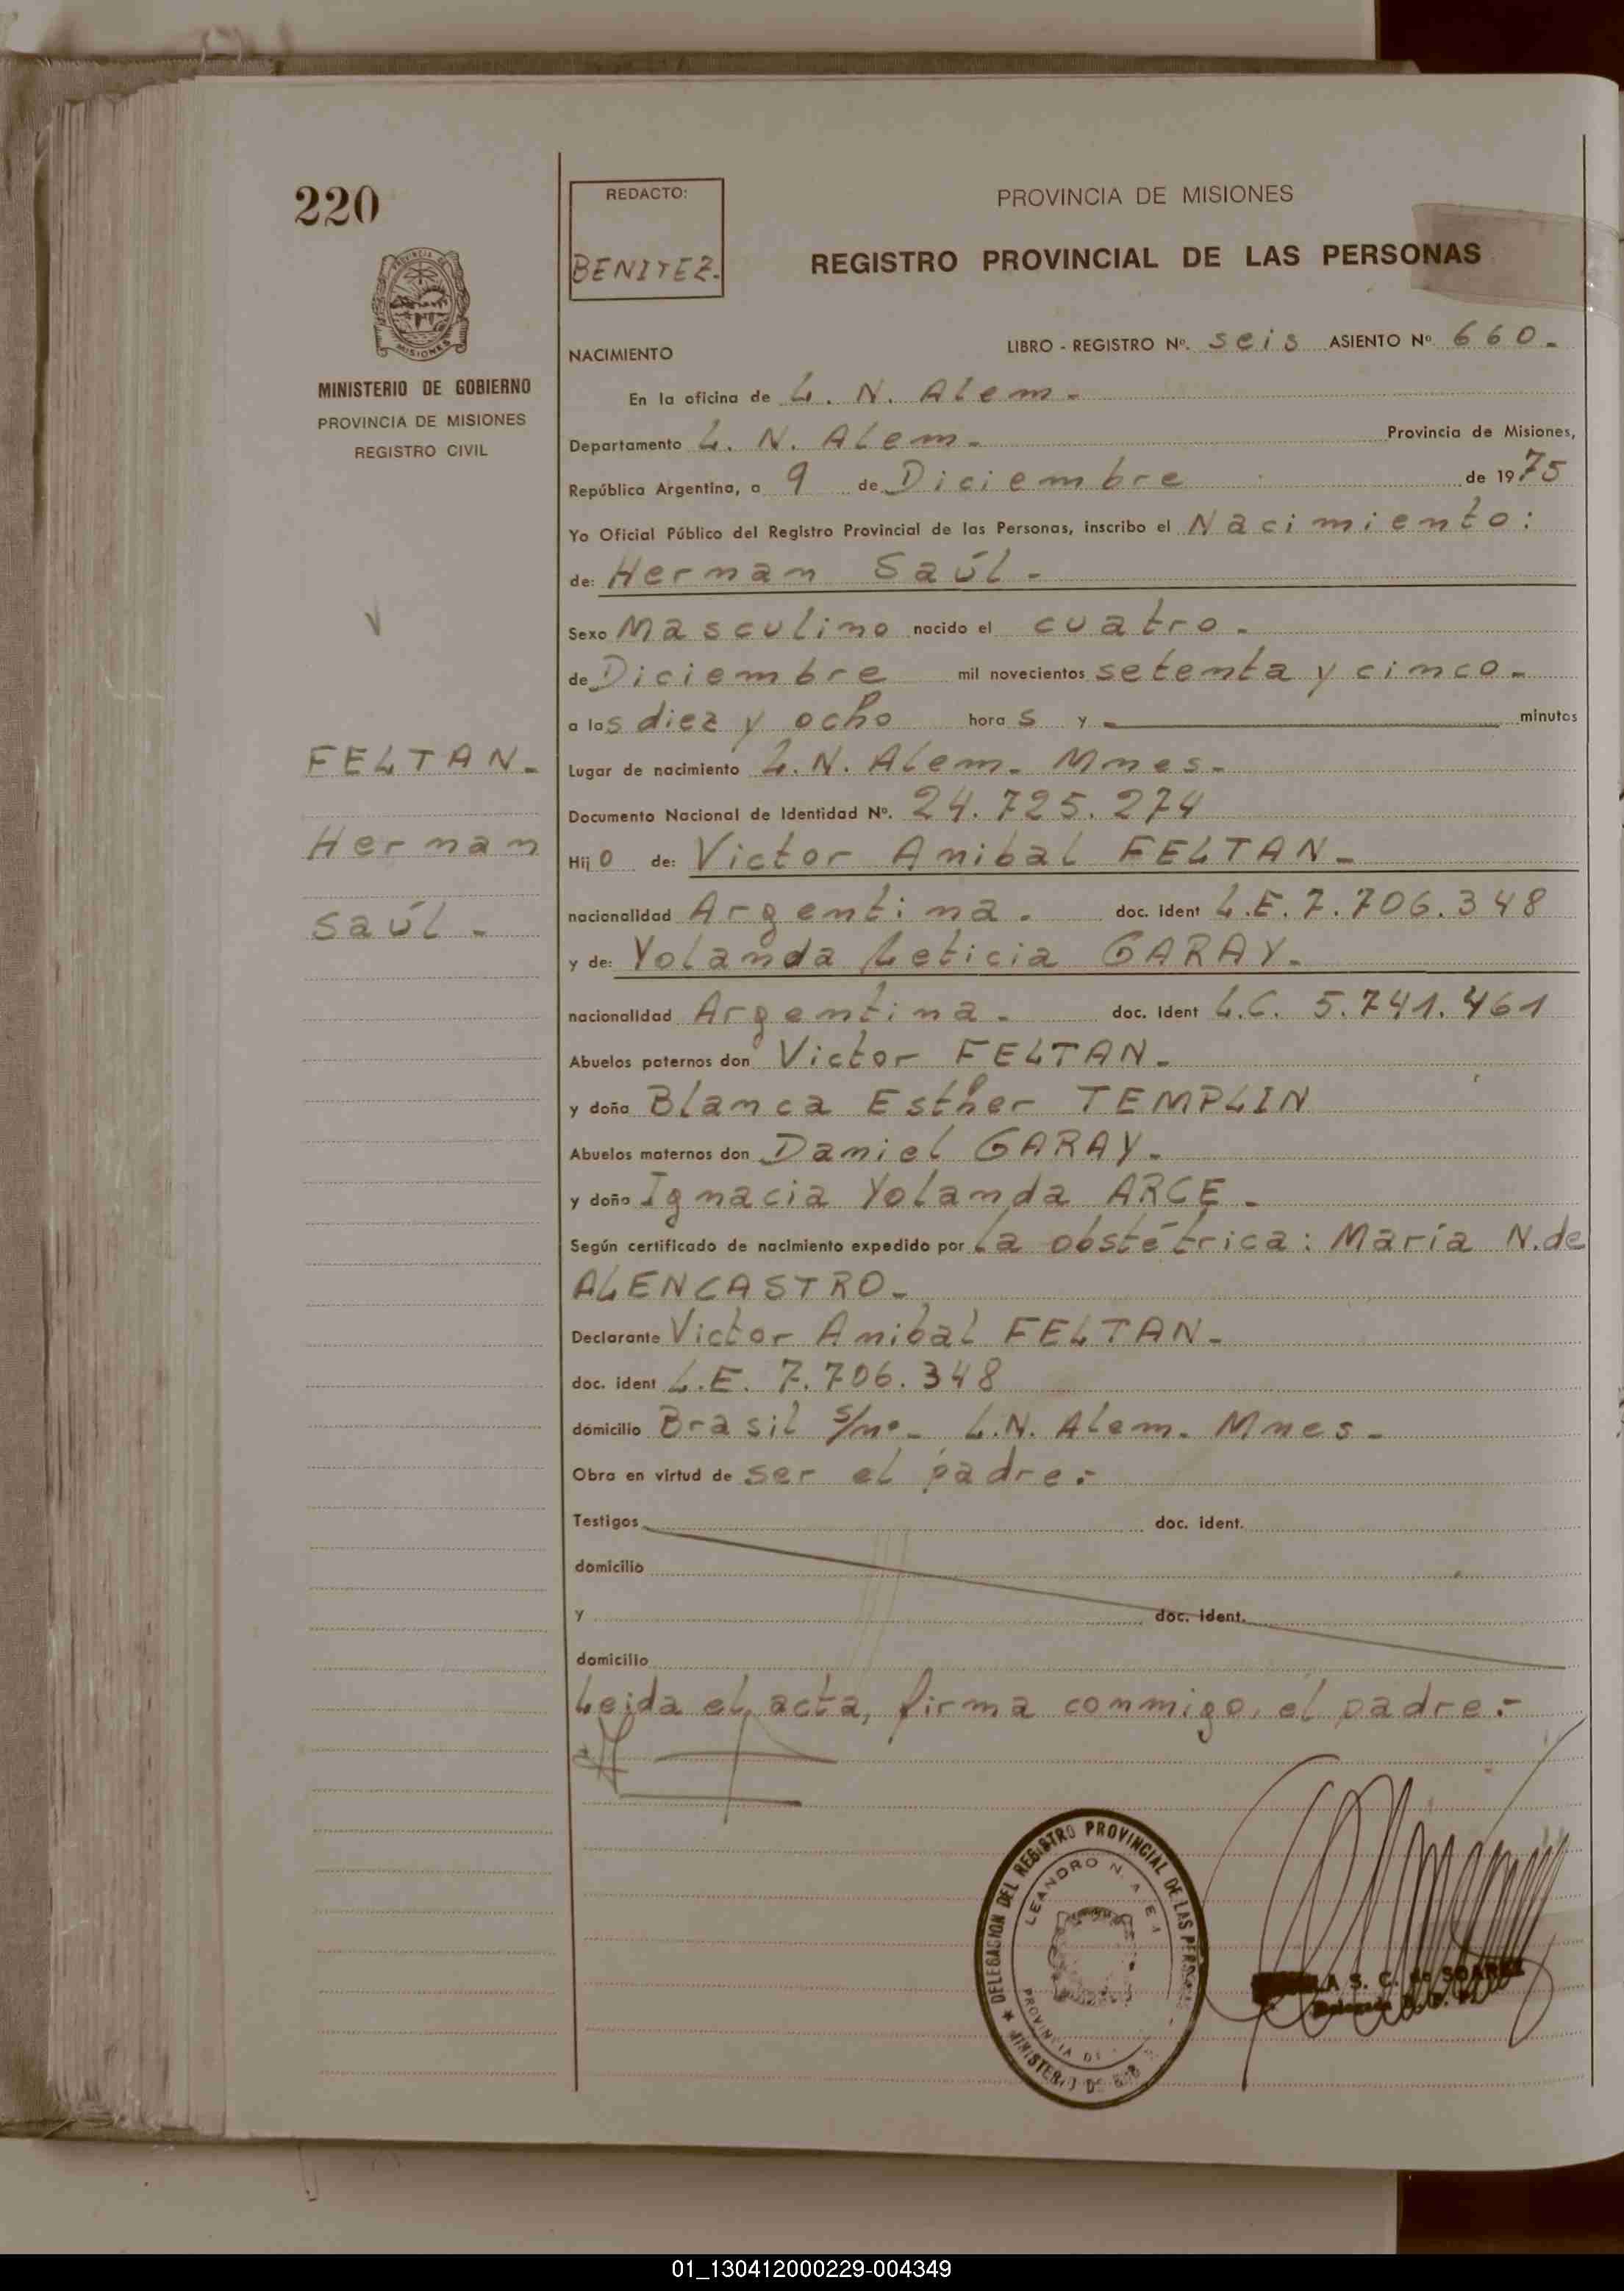 220
REDACTO:
BENITEZ.
PROVINCIA DE MISIONES
REGISTRO PROVINCIAL DE LAS PERSONAS
MISIONES
MINISTERIO DE GOBIERNO
PROVINCIA DE MISIONES
REGISTRO CIVIL
NACIMIENTO
LIBRO - REGISTRO Nº. seis ASIENTO Nº 660.-
En la oficina de L. N. Alem.-
Departamento L. N. Alem.- Provincia de Misiones,
República Argentina, a 9 de Diciembre de 1975
Yo Oficial Público del Registro Provincial de las Personas, inscribo el Nacimiento:
de: Hernan Saúl.-
Sexo Masculino nacido el cuatro.-
de Diciembre mil novecientos setenta y cinco.-
a las diez y ocho horas y — minutos
Lugar de nacimiento L.N. Alem.- Mnes.-
Documento Nacional de Identidad Nº. 24.725.274
Hijo de: Victor Anibal FELTAN.-
nacionalidad Argentina.- doc. ident L.E. 7.706.348
y de: Yolanda Leticia GARAY.-
nacionalidad Argentina.- doc. Ident L.C. 5.741.461
Abuelos paternos don Victor FELTAN.-
y doña Blanca Esther TEMPLIN
Abuelos maternos don Daniel GARAY.-
y doña Ignacia Yolanda ARCE.-
Según certificado de nacimiento expedido por la obstétrica: María N. de
ALENCASTRO.-
Declarante Victor Anibal FELTAN.-
doc. ident L.E. 7.706.348
domicilio Brasil s/nº.- L.N. Alem.- Mnes.-
Obra en virtud de ser el padre.-
Testigos doc. ident.
domicilio
y doc. ident.
domicilio
Leida el acta, firma conmigo, el padre.-
FELTAN.-
Hernan
Saúl.-
DELEGACION DEL REGISTRO PROVINCIAL DE LAS
LEANDRO N.
PROVINCIA DE
MINISTERIO DE
S. C. de SOAREZ
01_130412000229-004349